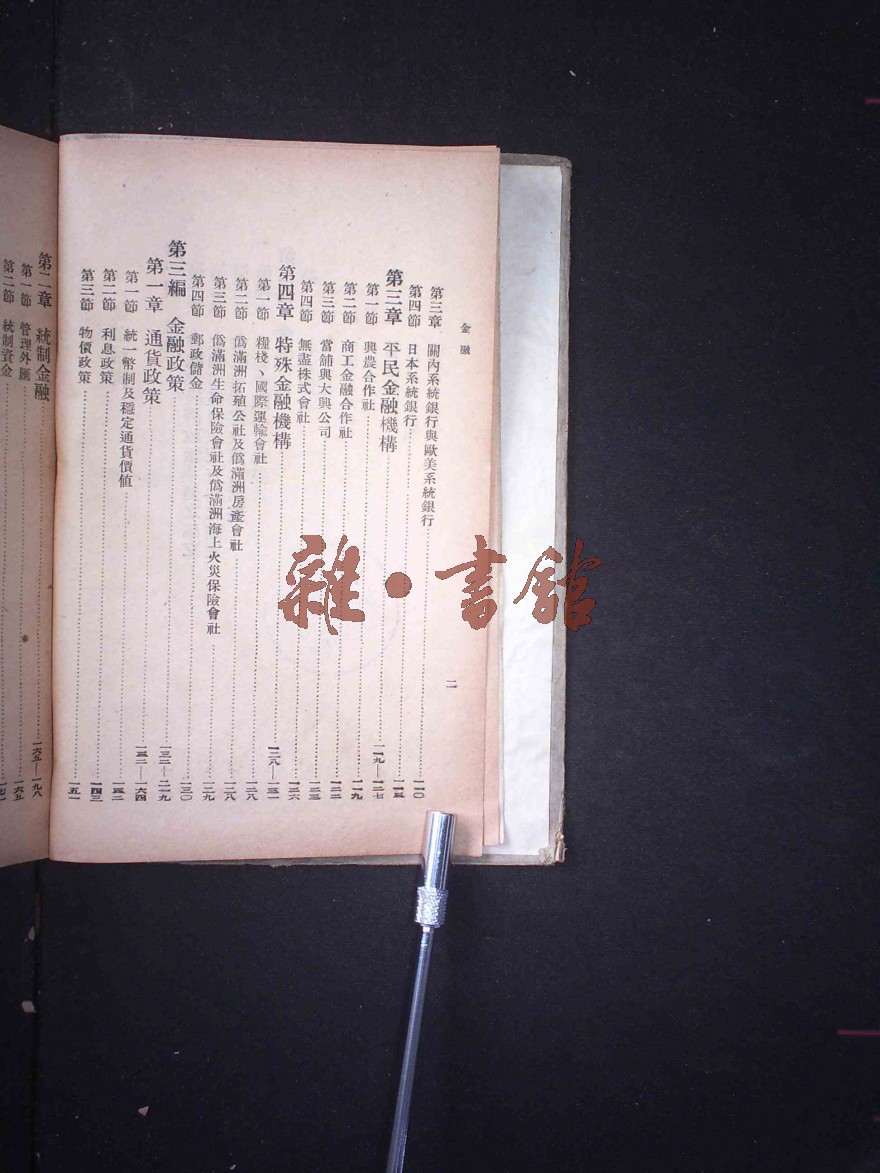 金融
二
第三章 關內系統銀行與歐美系統銀行……一一〇
第四節 日本系統銀行……一一三
第三章 平民金融機構……一一九—一二七
第一節 興農合作社……一一九
第二節 商工金融合作社……一二二
第三節 當舖與大興公司……一二三
第四節 無盡株式會社……一二六
第四章 特殊金融機構……一二八—一三一
第一節 糧棧、國際運輸會社……一二八
第二節 僞滿洲拓殖公社及僞滿洲房產會社……一二八
第三節 僞滿洲生命保險會社及僞滿洲海上火災保險會社……一二九
第四節 郵政儲金……一三〇
第三編 金融政策……一三二—二一九
第一章 通貨政策……一三二—一六四
第一節 統一幣制及穩定通貨價值……一三二
第二節 利息政策……一四三
第三節 物價政策……一五一
第二章 統制金融……一六五—一九八
第一節 管理外匯……一六五
第二節 統制資金
雜·書館